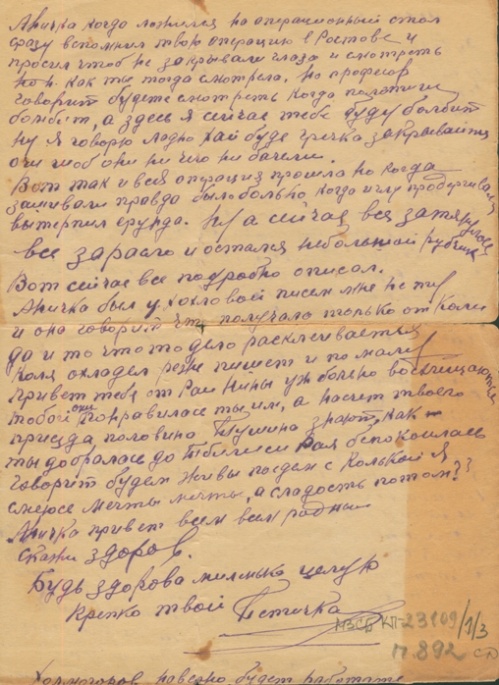 Аничка когда ложился на операционный стол
сразу вспомнил твою операцию в Ростове и
просил чтоб не закрывали глаза и смотреть
как ты тогда смотрела. но професор
говорит будете смотреть когда полетите
бомбит, а здесь я сейчас тебе буду бомбит
ну я говорю ладно хай буде гречка закрывайте
очи шоб они ни чего ни бачели.
Вот так и вся операция прошла но когда
зашивали правда было больно, когда иглу продергивали
вытерпил ерунда. Ну а сейчас вся
все заросло и остался небольшой рубчик
Вот сейчас все подробно описал.
Аничка был у Хохловой писем мне нет
и она говорит что получала только от Коли
да и то что то дело расклеивается
Коля охладел реже пишет и по малу
Привет тебе от Раи Нины уж больно восхищаются
тобой они понравилась ты им, а насчет твоего
приезда половина Тушина знают, как
ты добралась до Тбилиси Рая беспокоилась
говорит будем живы поедем с Колькой я
смеюсе мечты мечты, а сладость потом??
Аничка привет всем всем родным
скажи здоров.
Будь здорова миленька целую
Крепко твой Петичка
МЗСБ КП-23109/1/3
П.892
Холмогоров наверно будет работать